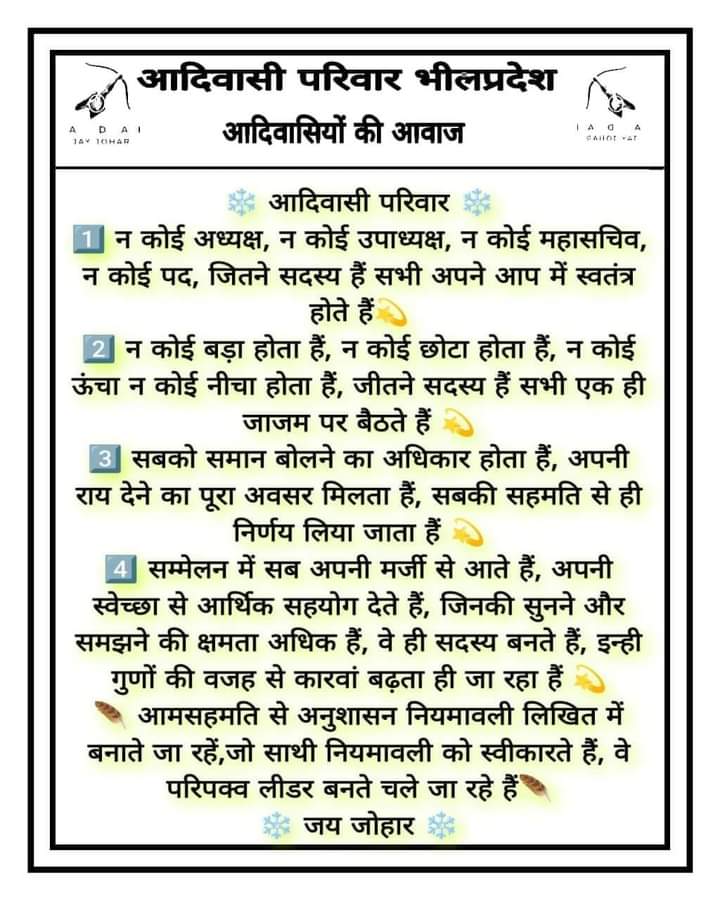 आदिवासी परिवार भीलप्रदेश
आदिवासियों की आवाज
A D A I
JAY JOHAR
❄️ आदिवासी परिवार ❄️
1️⃣ न कोई अध्यक्ष, न कोई उपाध्यक्ष, न कोई महासचिव,
न कोई पद, जितने सदस्य हैं सभी अपने आप में स्वतंत्र
होते हैं💫
2️⃣ न कोई बड़ा होता हैं, न कोई छोटा होता हैं, न कोई
ऊंचा न कोई नीचा होता हैं, जीतने सदस्य हैं सभी एक ही
जाजम पर बैठते हैं 💫
3️⃣ सबको समान बोलने का अधिकार होता हैं, अपनी
राय देने का पूरा अवसर मिलता हैं, सबकी सहमति से ही
निर्णय लिया जाता हैं 💫
4️⃣ सम्मेलन में सब अपनी मर्जी से आते हैं, अपनी
स्वेच्छा से आर्थिक सहयोग देते हैं, जिनकी सुनने और
समझने की क्षमता अधिक हैं, वे ही सदस्य बनते हैं, इन्ही
गुणों की वजह से कारवां बढ़ता ही जा रहा हैं 💫
🪶 आमसहमति से अनुशासन नियमावली लिखित में
बनाते जा रहें,जो साथी नियमावली को स्वीकारते हैं, वे
परिपक्व लीडर बनते चले जा रहे हैं🪶
❄️ जय जोहार ❄️